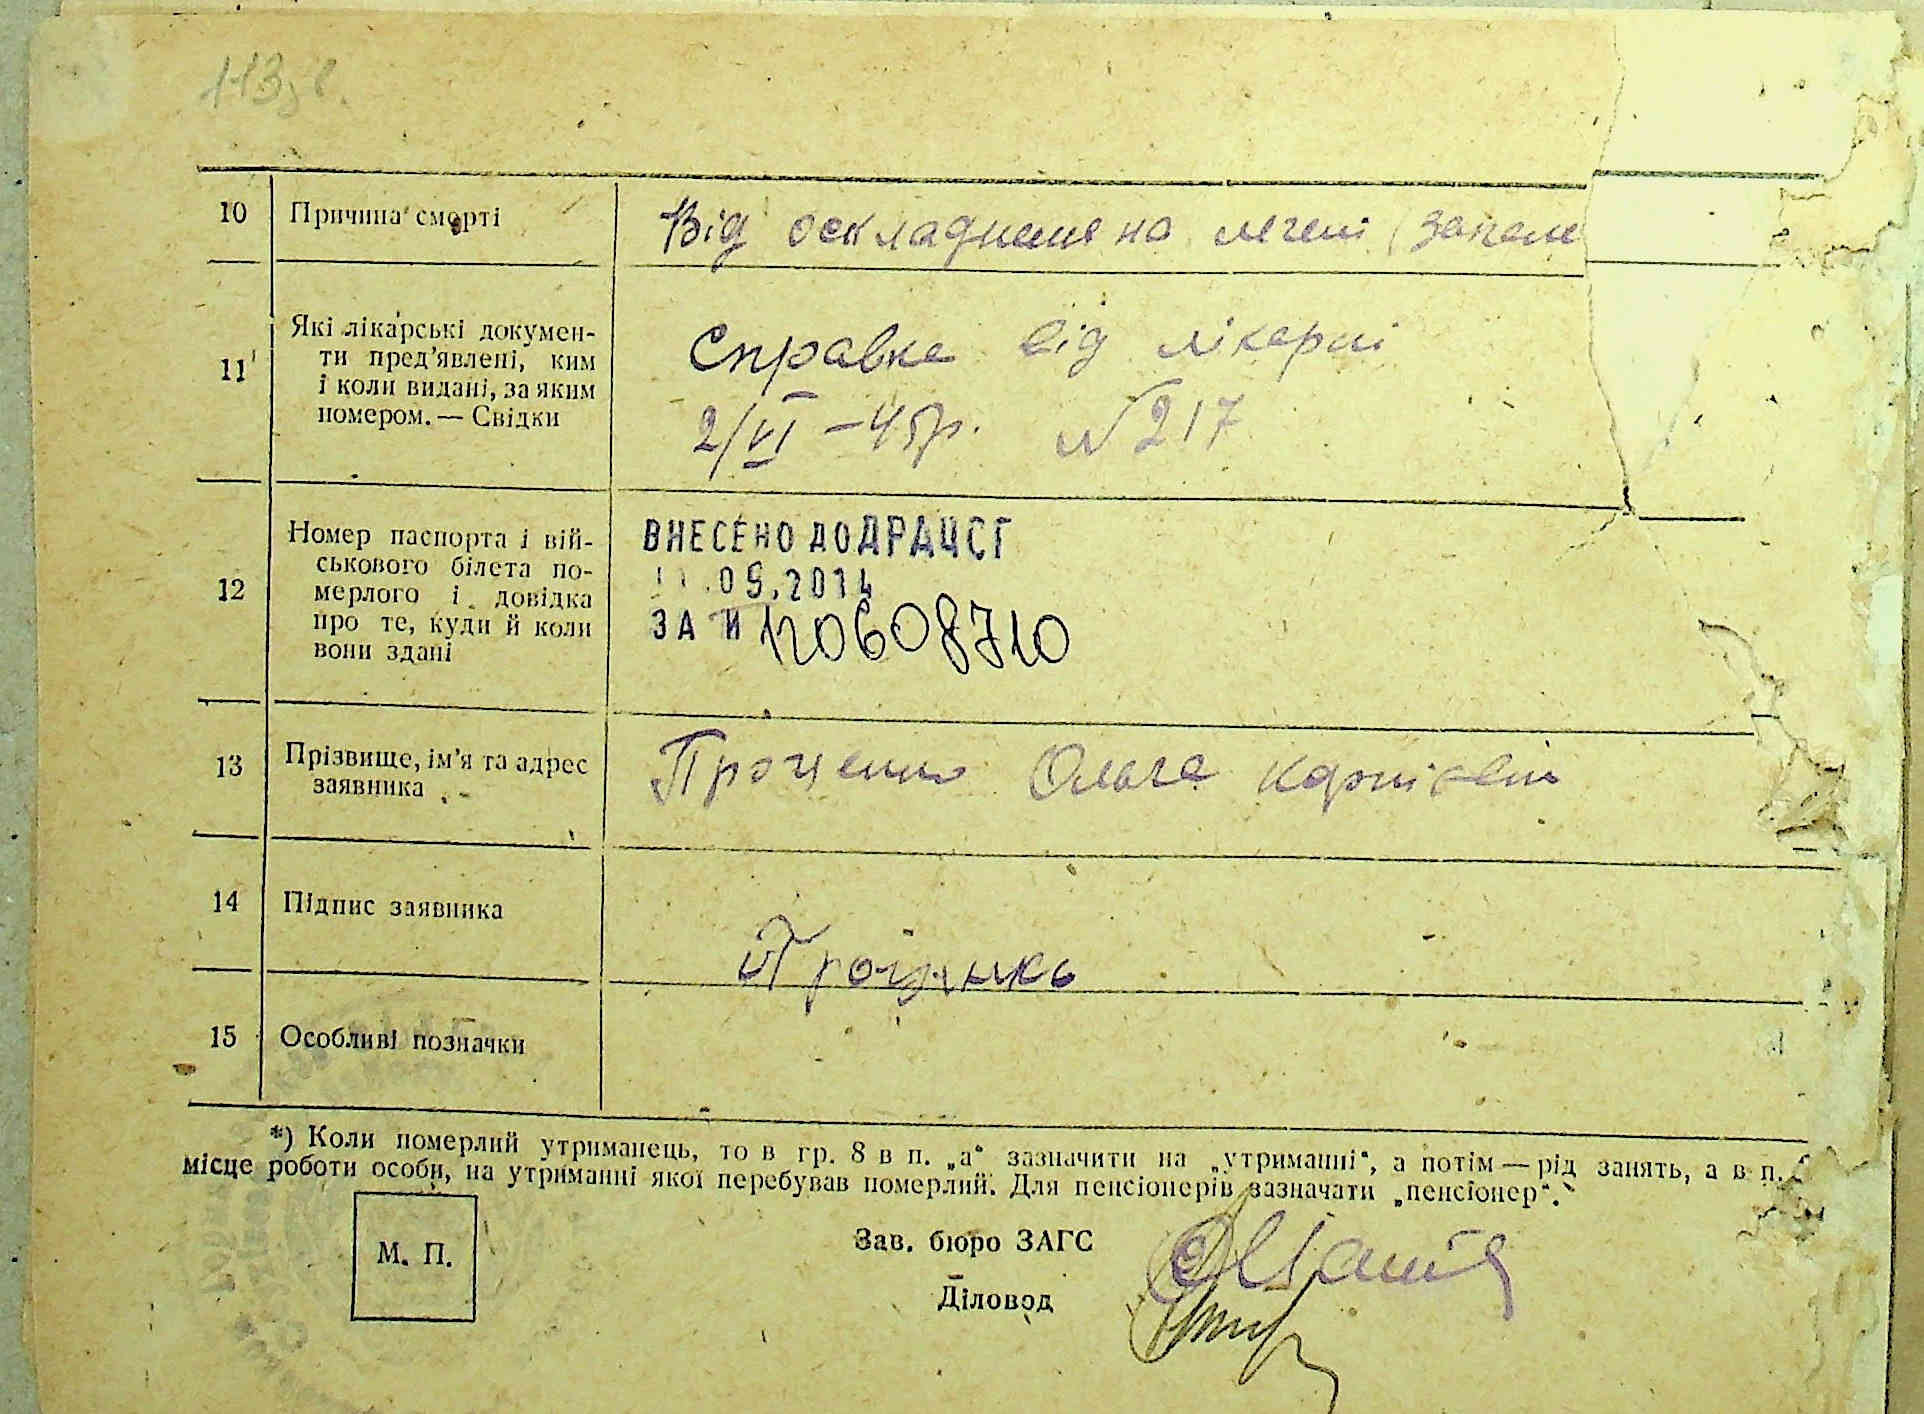 10 Причина смерті Від оскладнене на легені (запале
11 Які лікарські докумен-
ти пред'явлені, ким
і коли видані, за яким
номером. — Свідки
Справка від лікарні
2/VI – 45р. N 217
12 Номер паспорта і вій-
ськового білета по-
мерлого і довідка
про те, куди й коли
вони здані
ВНЕСЕНО ДО ДРАЦСГ
11.09.2014
ЗА И 120608710
13 Прізвище, ім'я та адрес
заявника
Ольга
14 Підпис заявника
15 Особливі позначки
*) Коли померлий утриманець, то в гр. 8 в п. „а“ зазначити на „утриманні“, а потім — рід занять, а в п.
місце роботи особи, на утриманні якої перебував померлий. Для пенсіонерів зазначати „пенсіонер“.
М. П.
Зав. бюро ЗАГС
Діловод